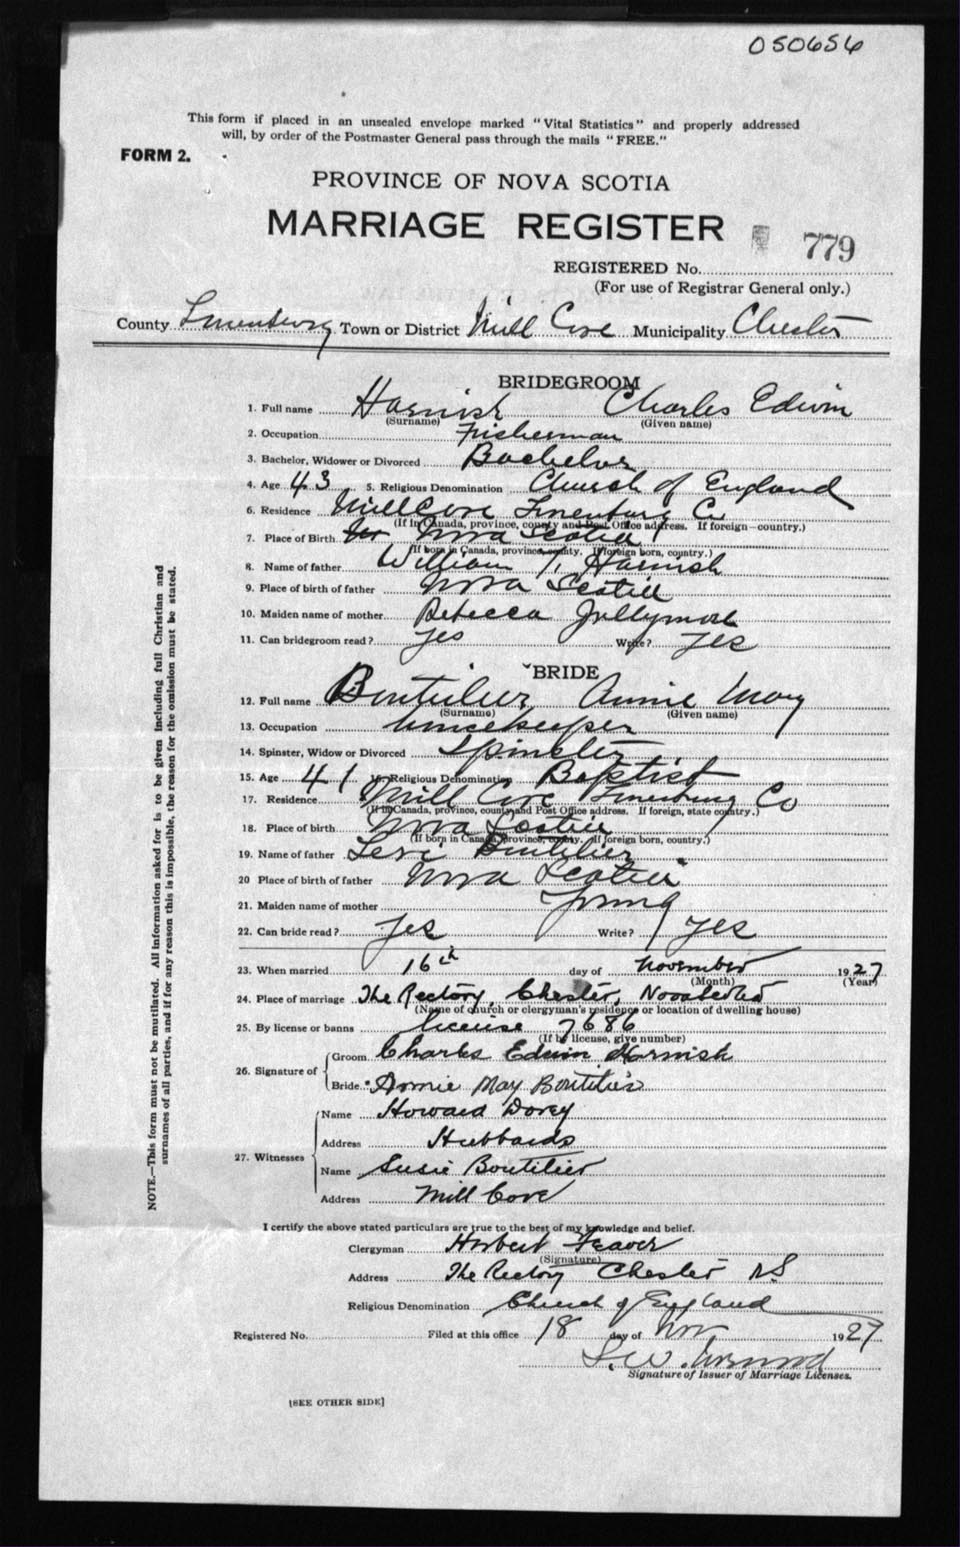 050656
This form if placed in an unsealed envelope marked "Vital Statistics" and properly addressed
will, by order of the Postmaster General pass through the mails "FREE."
FORM 2.
PROVINCE OF NOVA SCOTIA
MARRIAGE REGISTER
779
REGISTERED No.
(For use of Registrar General only.)
County Lunenburg Town or District Mill Cove Municipality Chester
BRIDEGROOM
1. Full name Harnish Charles Edwin
(Surname) (Given name)
2. Occupation Fisherman
3. Bachelor, Widower or Divorced Bachelor
4. Age 43 5. Religious Denomination Church of England
6. Residence Mill Cove Lunenburg Co
(If in Canada, province, county and Post Office address. If foreign—country.)
7. Place of Birth Nova Scotia
(If born in Canada, province, county. If foreign born, country.)
8. Name of father William T. Harnish
9. Place of birth of father Nova Scotia
10. Maiden name of mother Rebecca Jollymore
11. Can bridegroom read? Yes Write? Yes
BRIDE
12. Full name Boutilier Annie May
(Surname) (Given name)
13. Occupation housekeeper
14. Spinster, Widow or Divorced Spinster
15. Age 41 16. Religious Denomination Baptist
17. Residence Mill Cove Lunenburg Co
(If in Canada, province, county and Post Office address. If foreign, state country.)
18. Place of birth Nova Scotia
(If born in Canada, province, county. If foreign born, country.)
19. Name of father Levi Boutilier
20 Place of birth of father Nova Scotia
21. Maiden name of mother Young
22. Can bride read? Yes Write? Yes
23. When married 16th day of November 1927
(Month) (Year)
24. Place of marriage The Rectory, Chester, Nova Scotia
(Name of church or clergyman's residence or location of dwelling house)
25. By license or banns license 7686
(If by license, give number)
26. Signature of
Groom Charles Edwin Harnish
Bride Annie May Boutilier
27. Witnesses
Name Howard Dorey
Address Hubbards
Name Susie Boutilier
Address Mill Cove
I certify the above stated particulars are true to the best of my knowledge and belief.
Clergyman Herbert Feaver
(Signature)
Address The Rectory Chester NS
Religious Denomination Church of England
Registered No. Filed at this office 18 day of Nov 1927
Signature of Issuer of Marriage Licenses.
[SEE OTHER SIDE]
NOTE.—This form must not be mutilated. All information asked for is to be given including full Christian and
surnames of all parties, and if for any reason this is impossible, the reason for the omission must be stated.